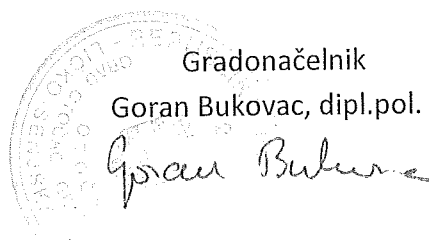 Gradonačelnik
Goran Bukovac, dipl.pol.
Goran Bukovac